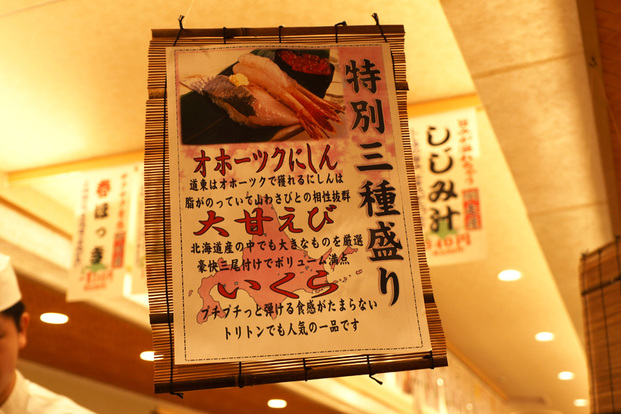 特別三種盛り
オホーツクにしん
道東はオホーツクで獲れるにしんは
脂がのっていて山わさびとの相性抜群
大甘えび
北海道産の中でも大きなものを厳選
豪快三尾付けでボリューム満点
いくら
プチプチっと弾ける食感がたまらない
トリトンでも人気の一品です
しじみ汁
春ほっき